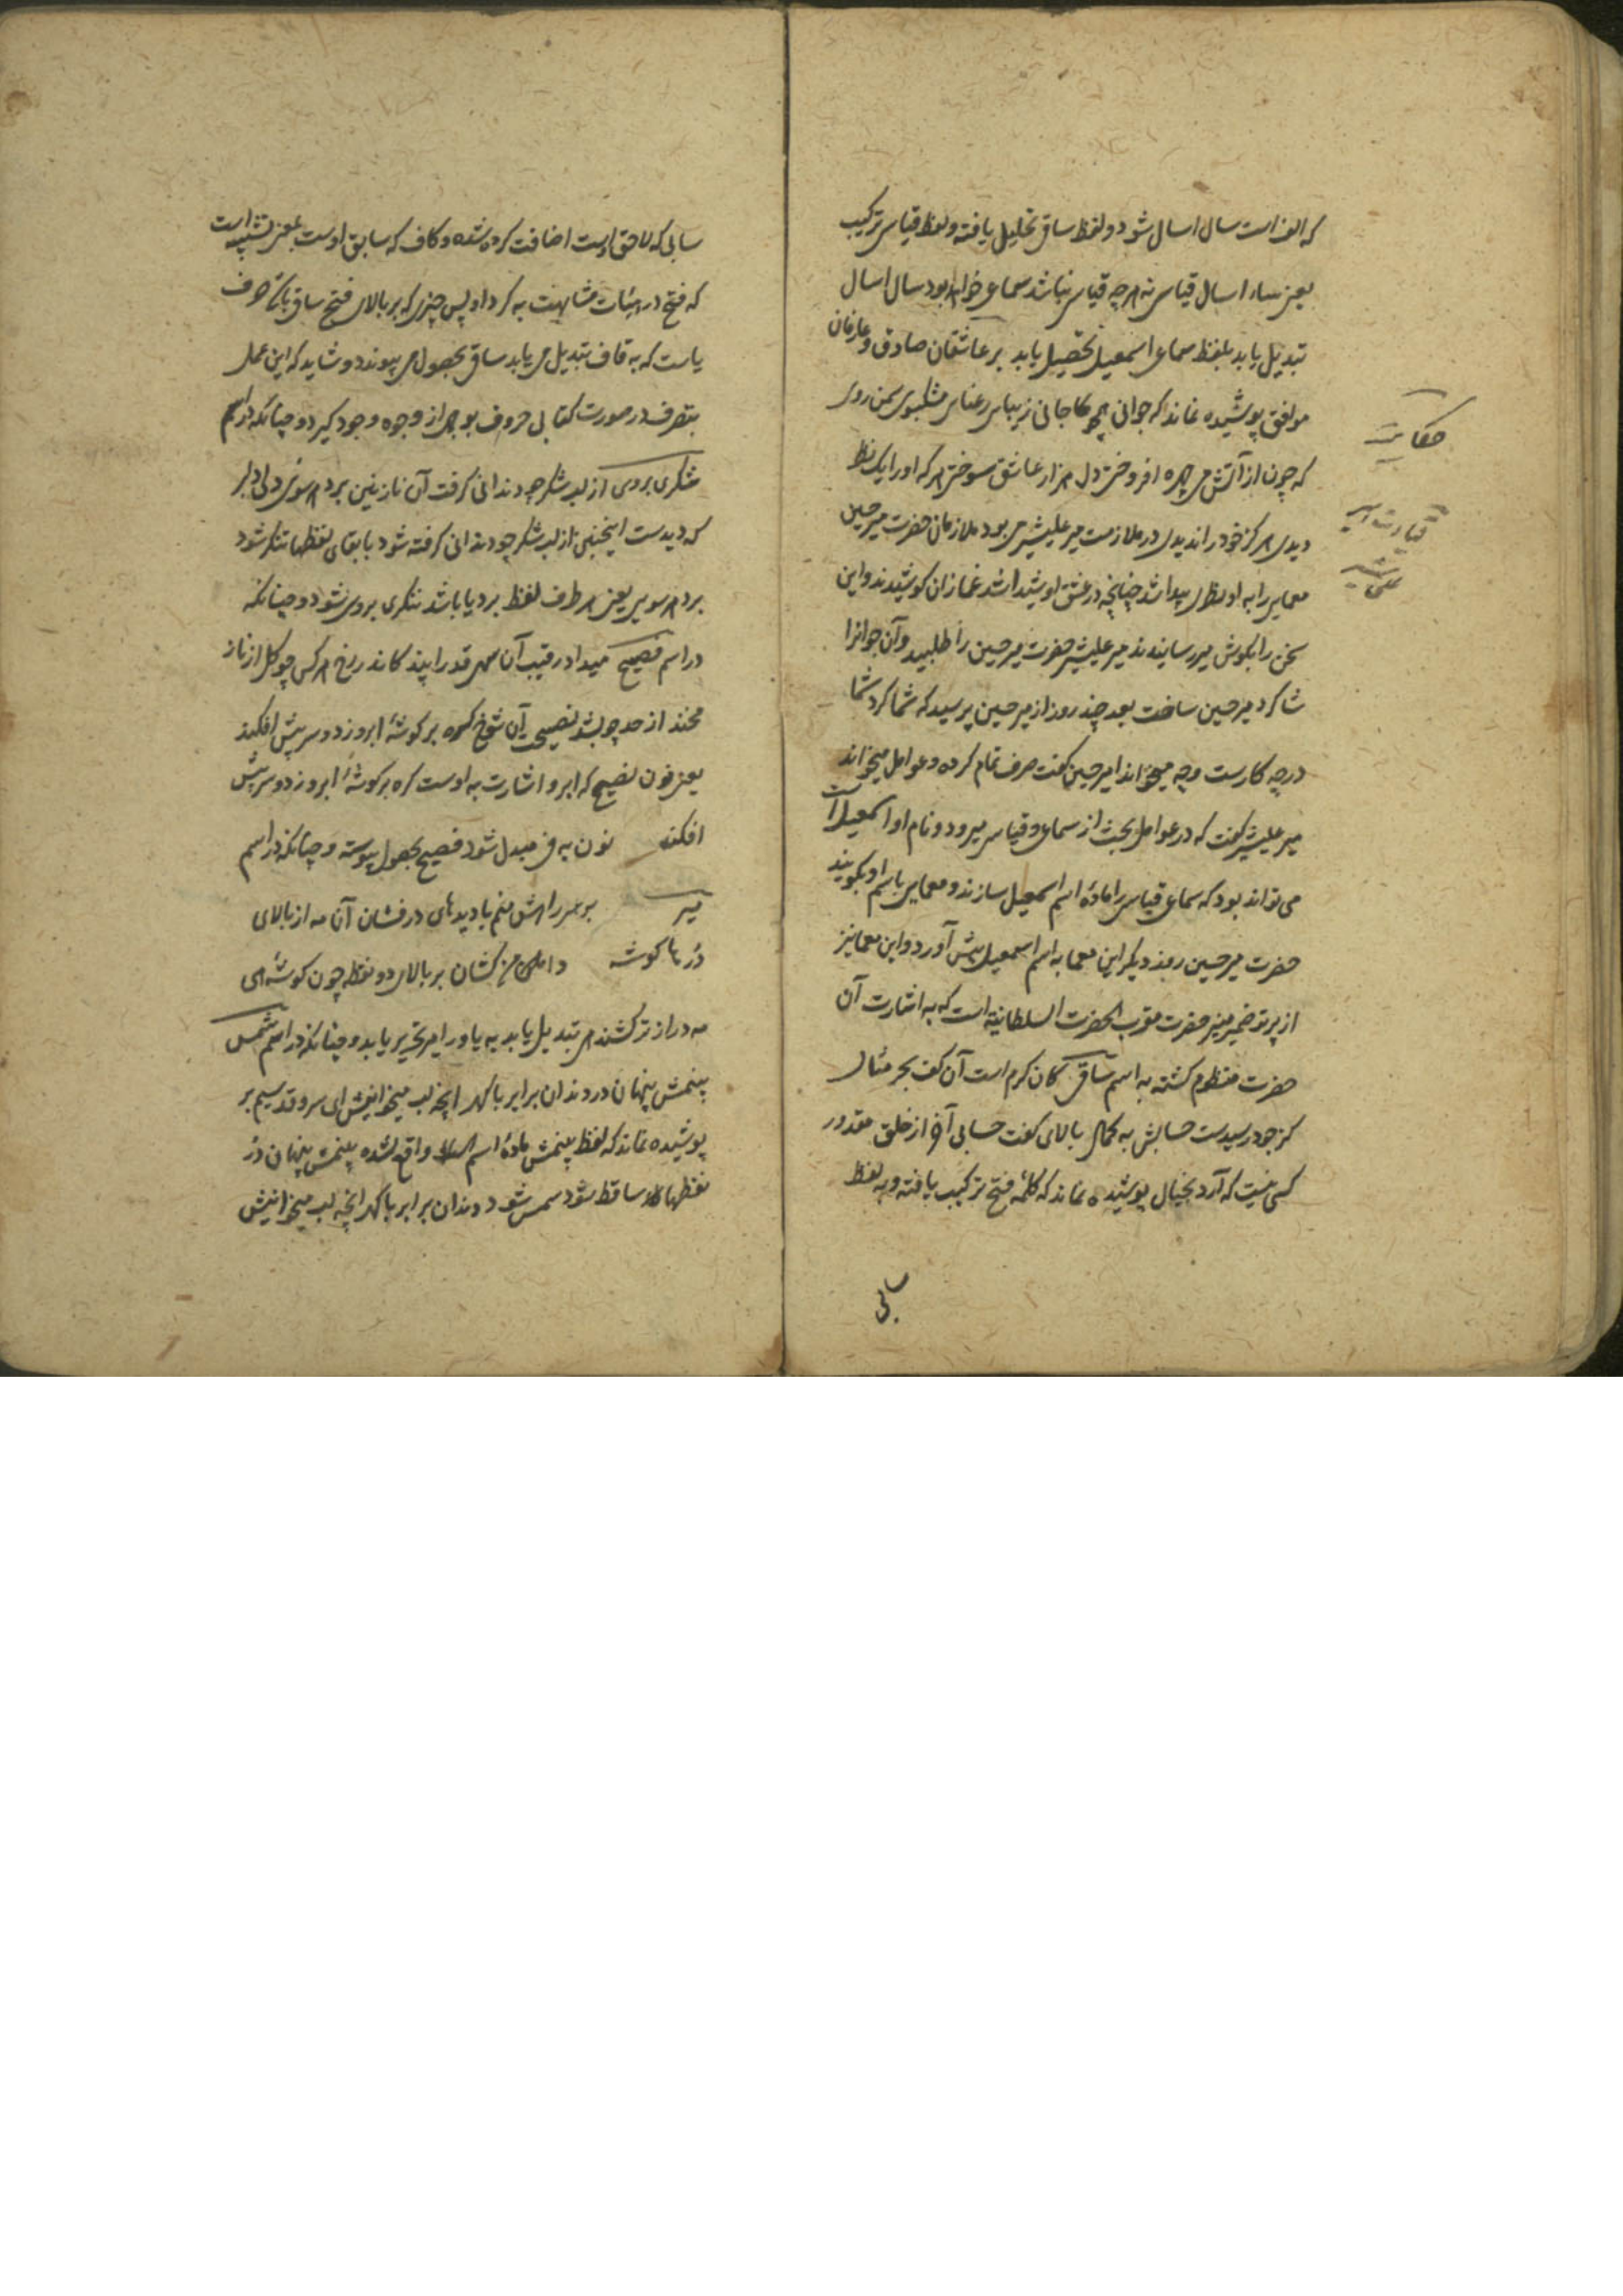 که الف است سال اسال شود و لفظ ساق تحلیل یافته و لفظ قیاس ترکیب
یعنی اسال قیاس نه هرچه قیاس نباشد سماعی خواهد بود سال اسال
تبدیل یابد بلفظ سماع اسمعیل تحصیل یابد بر عاشقان صادق و عارفان
موافق پوشیده نماند که جوانی زیبای رعنای مشکبوی سمن روی
حکایت
که چون از آتش می چهره افروختی دل هزار عاشق سوختی هر که او را یک نظر
دیدی هرگز خود را ندیدی در ملازمت میر علیشیر می بود ملازمان حضرت میر حسین
معمایی را به او نظری پیدا شد چنانچه در عشق او شیدا شد غمازان کوشیدند و این
سخن را بکوش میر رسانیدند میر علیشیر حضرت میر حسین را طلبید و آن جوانرا
شاکرد میر حسین ساخت بعد چند روز از میر حسین پرسید که شاکرد شما
در چه کارست و چه میخواند امیر حسین کفت صرف تمام کرده و عوامل میخواند
میر علیشیر کفت که در عوامل بحث از سماع و قیاس میرود و نام او اسمعیل است
می تواند بود که سماع قیاس را مادهٔ اسم اسمعیل سازند و معمایی باسم او بکویند
حضرت میر حسین روز دیکر این معما به اسم اسمعیل پیش آورد و این معما نیز
از پرتو ضمیر منیر حضرت مقرب الحضرت السلطانیة است که به اشارت آن
حضرت منظوم کشته به اسم ساقی کان کرم است آن کف بحر مثال
کز جود رسیدست حسابش به کمال بالای کفت حسابی آخر از خلق مقدور
کسی نیست که آرد بخیال پوشیده نماند که کلمهٔ فتح ترکیب یافته و به لفظ
سابی
سابی که لاحق اوست اضافت کرده شده و کاف که سابق اوست بمعنی تشبیه است
که فتح در هیئات مشابهت به کرد او پس چیزی که بر بالای فتح ساقی باشد حرف
یاست که به قاف تبدیل می یابد ساقی بحصول می پیوندد و شاید که این عمل
بتصرف در صورت کتابی حروف بوجهی از وجوه وجود کیرد و چنانکه در اسم
شکری بردی از لب شکر چو دندانی کرفت آن نازنین برد هر سویی دلی دلبر
که دیدست اینچنین از لب شکر چو دندانی کرفته شود با بقای نقطها تنکر شود
برد هر سویی یعنی هر طرف لفظ برد یا باشد شکری بردی شود و چنانکه
در اسم فصیح میداد رقیب آن سهی قد را پند کاندر رخ هر کس چو کل از ناز
مخند از حد چو بشد نصیحت آن شوخ کره بر کوشهٔ ابرو زد و سر پیش افکند
یعنی نون نصیح که ابرو اشارت به اوست کره بر کوشهٔ ابرو زد و سر پیش
افکند نون به ف مبدل شود فصیح بحصول پیوسته و چنانکه در اسم
میر بر سر راهش منم با دیدهای درفشان آن مه از بالای
در ها کوشه دامن کشان بر بالای دو نقطه چون کوشه‌ای
مه دراز تر کشند هی تبدیل یابد به یا و را امیر تحریر یابد و چنانکه در اسم شمس
بینمش پنهان در دندان برابر با کهر انچه لب میخوانیش ای سرو قد سیم بر
پوشیده نماند که لفظ بینمش مادهٔ اسم واقع شده بینمش پنهان در
نقطها ساقط شود سمس شود دندان برابر با کهر انچه لب میخوانیش